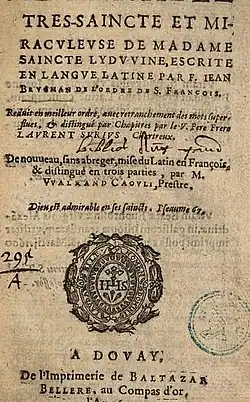 TRES-SAINCTE ET MI-
RACVLEVSE DE MADAME
SAINCTE LYDVVINE, ESCRITE
EN LANGVE LATINE PAR F. IEAN
BRVGMAN DE L'ORDRE DE S. FRANÇOIS,
Reduit en meilleur ordre, auec retranchement des mots super-
flues, & distingué par Chapitres par le V. Pere Frere
LAVRENT SVRIVS, Chartreux.
De nouueau, sans abreger, mise du Latin en François,
& distingué en trois parties, par M.
VVALRAND CAOVLT, Prestre,
Dieu est admirable en ses saincts. Pseaume 67.
291
A.
IHS
A DOVAY,
De l'Imprimerie de BALTAZAR
BELLERE, au Compas d'or,